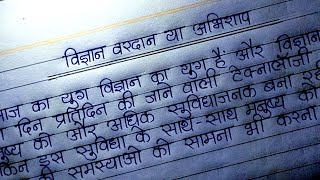 विज्ञान वरदान या अभिशाप
आज का युग विज्ञान का युग हैं और विज्ञान
दिन प्रतिदिन की जाने वाली टेक्नोलॉजी
मनुष्य को और अधिक सुविधाजनक बना रही
लेकिन इस सुविधा के साथ-साथ मनुष्य को
की समस्याओं का सामना भी करना